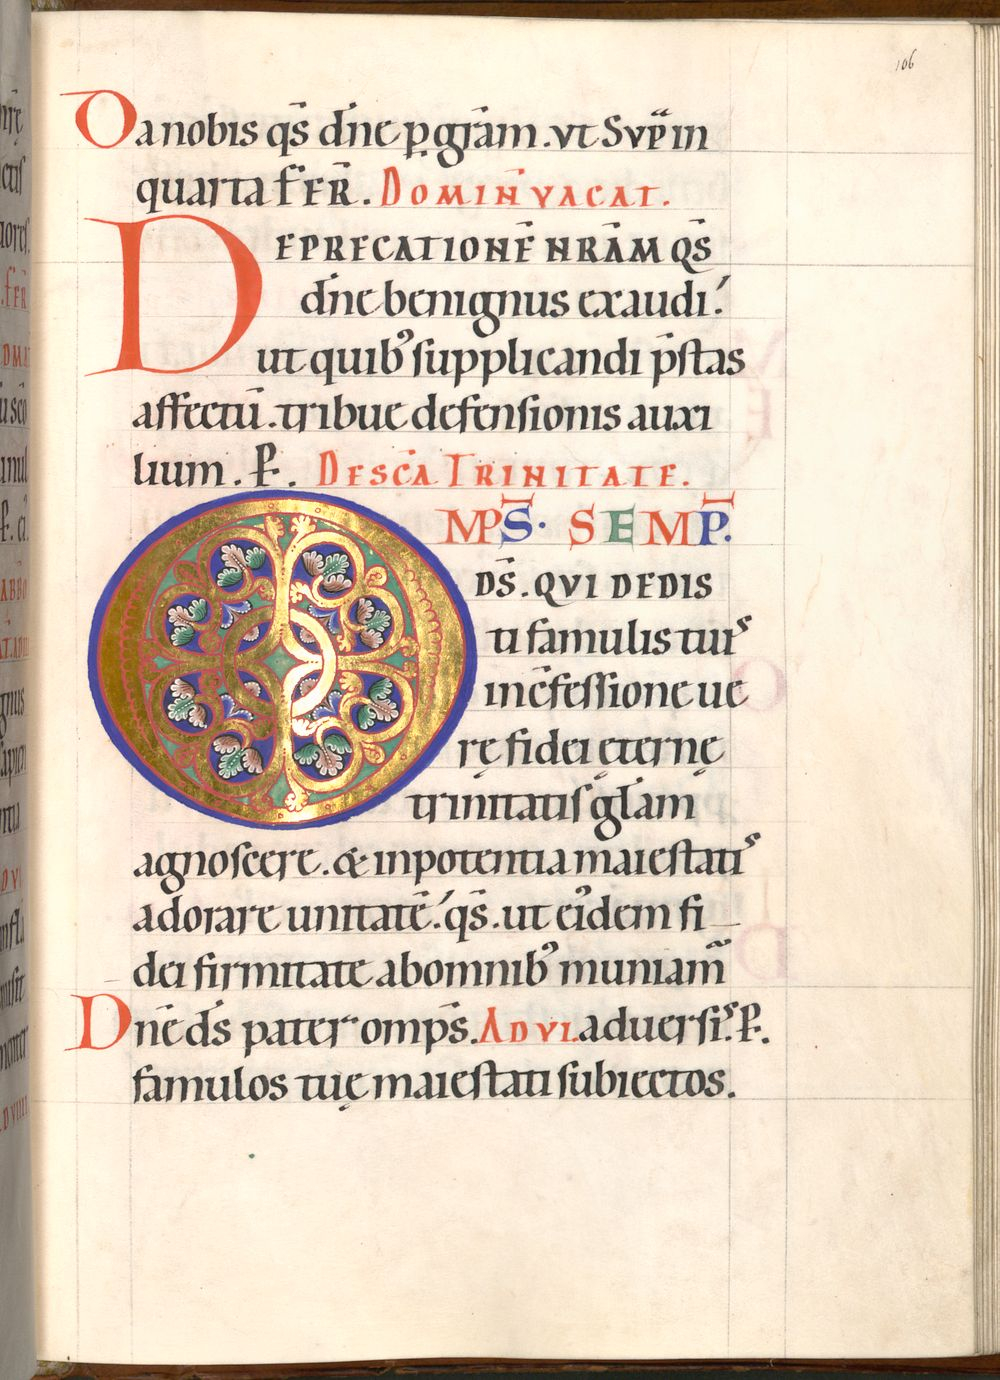 106
Da nobis qs̄ dn̄e p̱ gr̄am . vt Svp̄ in
quarta fer̄ . Domin̄ vacat .
Deprecationē nr̄am qs̄
dn̄e benignus exaudi .
ut quibꝰ supplicandi p̄stas
affectū . tribue defensionis auxi
lium . P̱ . De scā Trinitate .
Omp̄s . Semp̄ .
ds̄ . qvi dedis
ti famulis tuis
in c̄fessione ue
rę fidei ęternę
trinitatis gl̄am
agnoscere . & in potentia maiestatis
adorare unitatē . qs̄ . ut ei᷒dem fi
dei firmitate ab omnibꝰ muniam̃
Dn̄e ds̄ pater omp̄s . Ad vi . aduersis . P̱ .
famulos tuę maiestati subiectos .